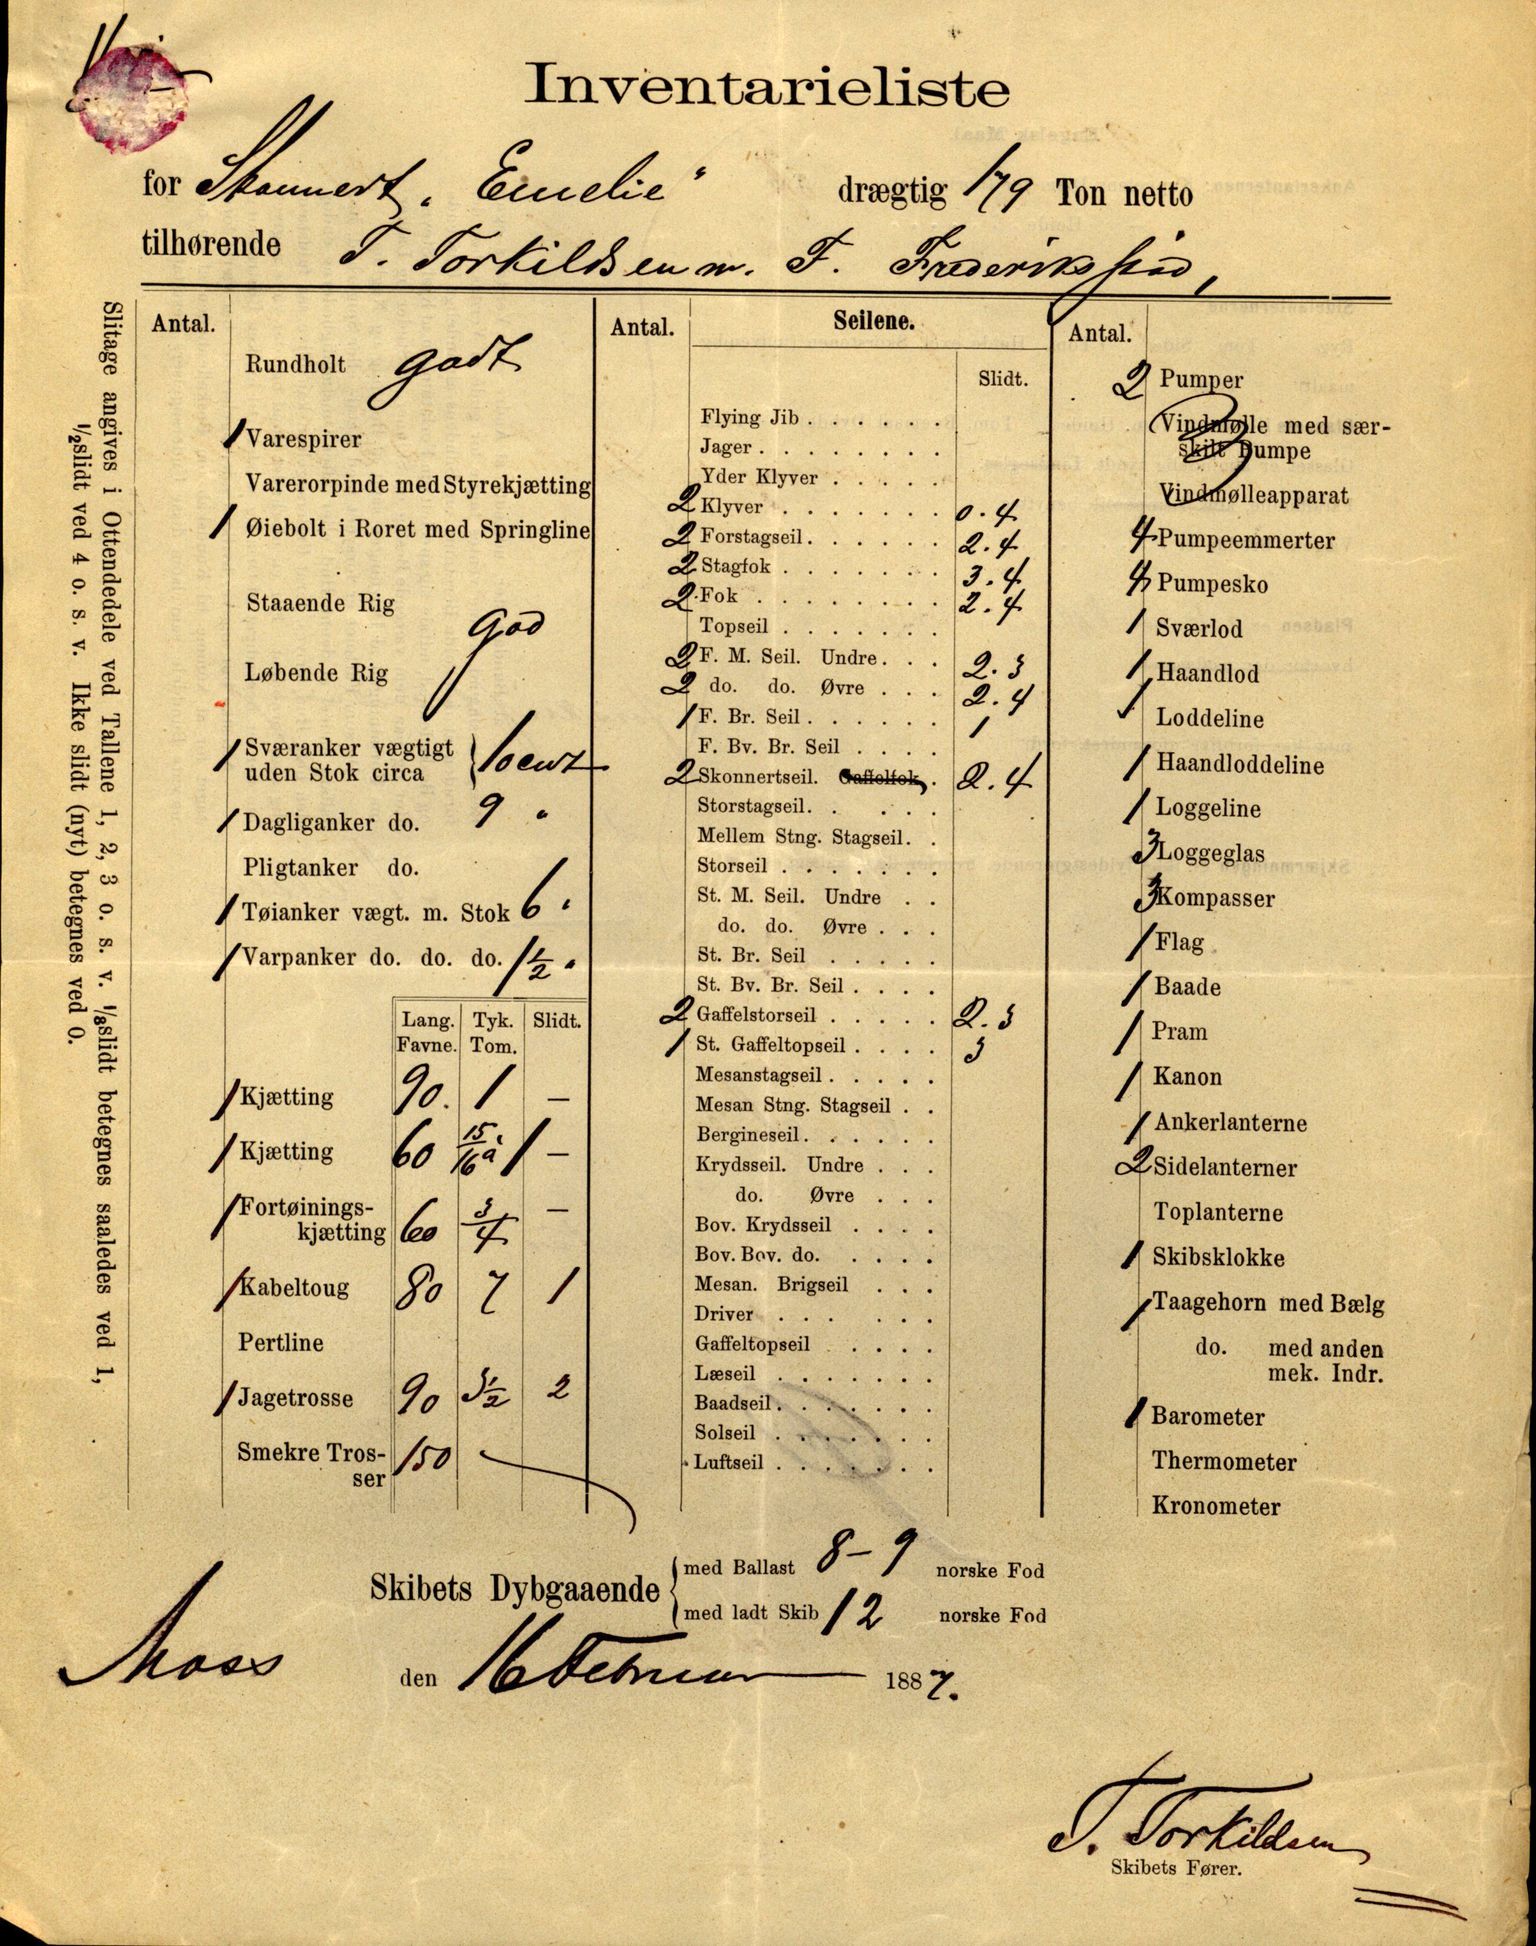 Inventarieliste
for Skonnert „Emelie“ drægtig 179 Ton netto
tilhørende T. Torkildsen m. F. Frederikstad,
Slitage angives i Ottendedele ved Tallene 1, 2, 3 o. s. v. 1/8 slidt betegnes saaledes ved 1,
1/2 slidt ved 4 o. s. v. Ikke slidt (nyt) betegnes ved 0.
Antal.
Rundholt godt
1 Varespirer
Varerorpinde med Styrekjætting
1 Øiebolt i Roret med Springline
Staaende Rig
god
Løbende Rig
1 Sværanker vægtigt
uden Stok circa 10 cwt
1 Dagliganker do. 9 "
Pligtanker do.
1 Tøianker vægt. m. Stok 6 "
1 Varpanker do. do. do. 1 1/2 "
Lang. Tyk. Slidt.
Favne. Tom.
1 Kjætting 90. 1 —
1 Kjætting 60 15/16 a 1 —
1 Fortøinings-
kjætting 60 3/4 —
1 Kabeltoug 80 7 1
Pertline
1 Jagetrosse 90 3 1/2 2
Smekre Tros-
ser 150
Antal. Seilene.
Slidt.
Flying Jib . . . . . .
Jager . . . . . . . .
Yder Klyver . . . . .
2 Klyver . . . . . . . 0.4
2 Forstagseil . . . . . . 2.4
2 Stagfok . . . . . . . 3.4
2 Fok . . . . . . . . 2.4
Topseil . . . . . . .
2 F. M. Seil. Undre . . . 2.3
2 do. do. Øvre . . . 2.4
1 F. Br. Seil . . . . . . 1
F. Bv. Br. Seil . . . .
2 Skonnertseil. Gaffelfok . 2.4
Storstagseil . . . . .
Mellem Stng. Stagseil . .
Storseil . . . . . . .
St. M. Seil. Undre . .
do. do. Øvre . . .
St. Br. Seil . . . . .
St. Bv. Br. Seil . . . .
2 Gaffelstorseil . . . . . 2.3
1 St. Gaffeltopseil . . . . 3
Mesanstagseil . . . . .
Mesan Stng. Stagseil . .
Bergineseil . . . . . .
Krydsseil. Undre . . .
do. Øvre . . .
Bov. Krydsseil . . . .
Bov. Bov. do. . . . .
Mesan. Brigseil . . .
Driver . . . . . .
Gaffeltopseil . . . .
Læseil . . . . . . .
Baadseil . . . . . . .
Solseil . . . . . . .
Luftseil . . . . . . .
Antal.
2 Pumper
Vindmølle med sær-
skilt Pumpe
Vindmølleapparat
4 Pumpeemmerter
4 Pumpesko
1 Sværlod
1 Haandlod
1 Loddeline
1 Haandloddeline
1 Loggeline
3 Loggeglas
3 Kompasser
1 Flag
1 Baade
1 Pram
1 Kanon
1 Ankerlanterne
2 Sidelanterner
Toplanterne
1 Skibsklokke
1 Taagehorn med Bælg
do. med anden
mek. Indr.
1 Barometer
Thermometer
Kronometer
Skibets Dybgaaende
med Ballast 8–9 norske Fod
med ladt Skib 12 norske Fod
Moss den 16 Februar 1887.
T. Torkildsen
Skibets Fører.